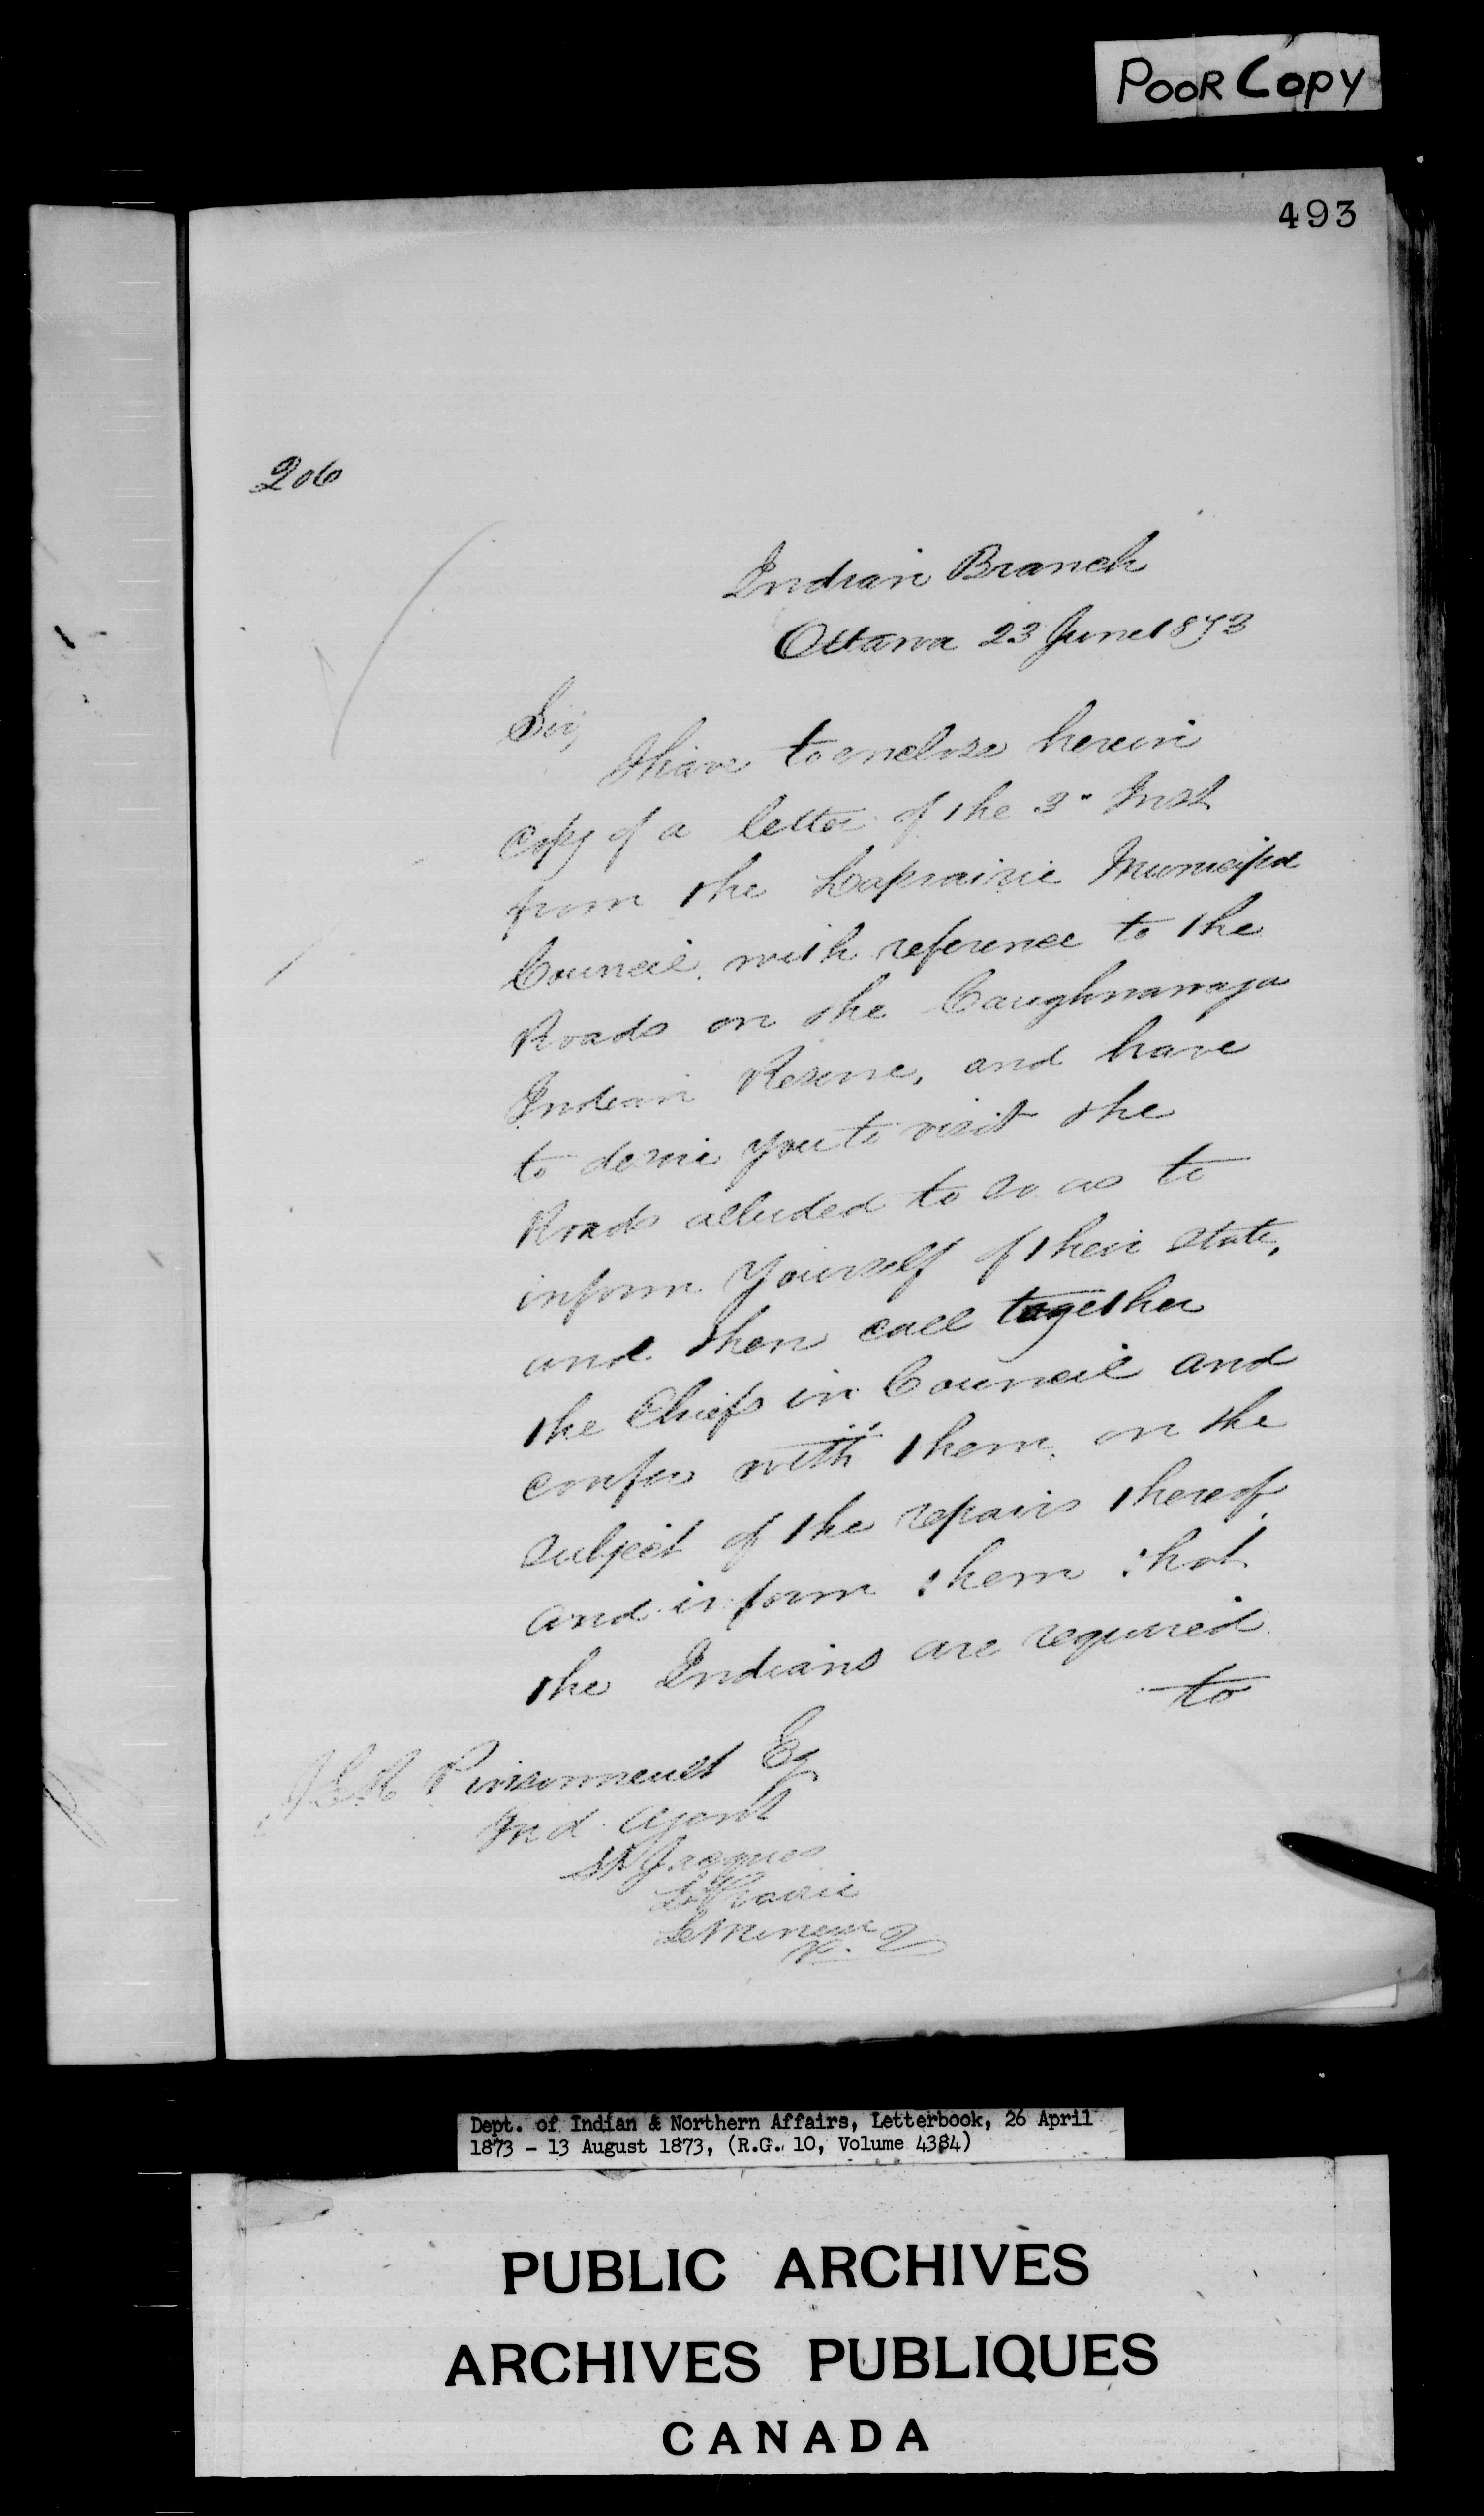 POOR COPY
493
206
Indian Branch
Ottawa 23 June 1873
Sir,
I have to enclose herein
copy of a letter of the 3" Inst
from the Laprairie Municipal
Council, with reference to the
Roads on the Caughnawaga
Indian Reserve, and have
to desire you to visit the
Roads alluded to so as to
inform yourself of their state,
and then call together
the Chiefs in Council and
confer with them, on the
subject of the repairs thereof,
and inform them that
the Indians are required
to
Pinsonneault Esq
Ind. Agent
St Jacques
LaPrairie
Le Mineur
P. Q
Dept. of Indian & Northern Affairs, Letterbook, 26 April
1873 - 13 August 1873, (R.G. 10, Volume 4384)
PUBLIC ARCHIVES
ARCHIVES PUBLIQUES
CANADA